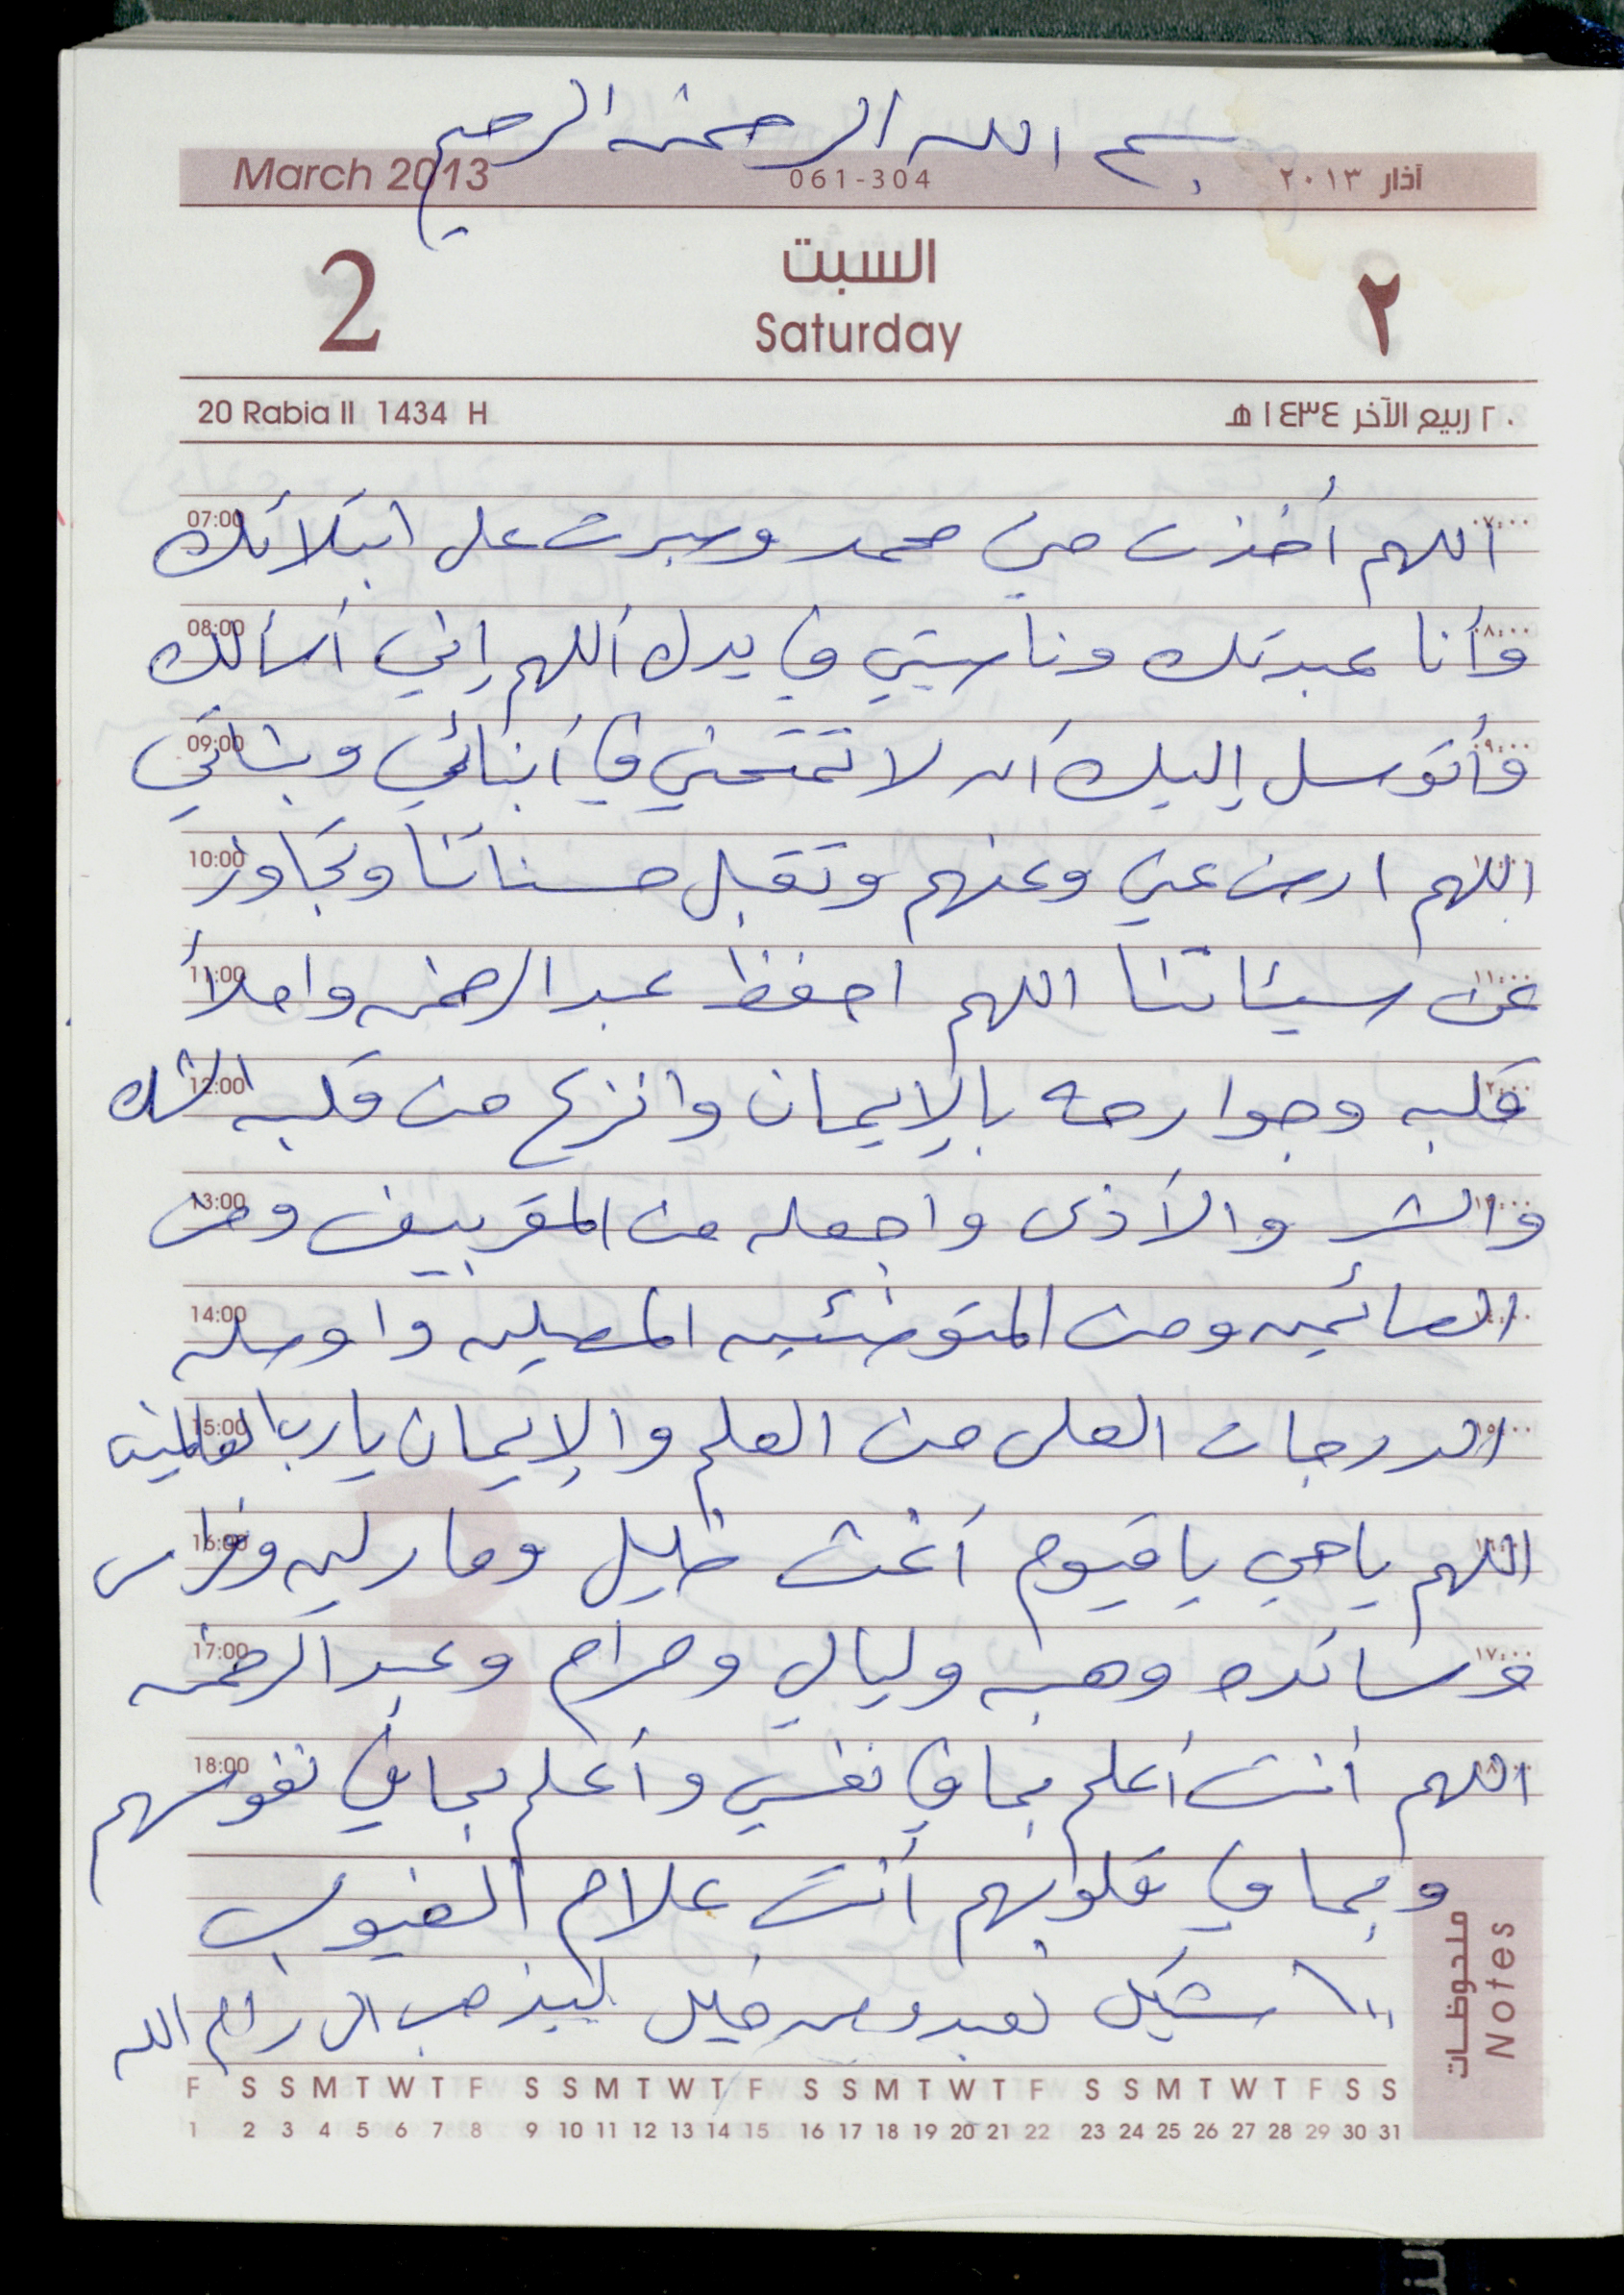 بسم الله الرحمن الرحيم
March 2013 061-304 آذار ٢٠١٣
2 السبت ٢
Saturday
20 Rabia II 1434 H ٢٠ ربيع الآخر ١٤٣٤ هـ
07:00 اللهم أخذت مني محمد وصبرت على ابتلائك ٠٧:٠٠
08:00 وأنا عبدتك وناصيتي في يدك اللهم إني أسألك ٠٨:٠٠
09:00 وأتوسل إليك أن لا تمتحني في أبنائي وبناتي ٠٩:٠٠
10:00 اللهم ارض عني وعنهم وتقبل حسناتنا وتجاوز
11:00 عن سيئاتنا اللهم احفظ عبد الرحمن واملأ ١١:٠٠
12:00 قلبه وجوارحه بالإيمان وانزع من قلبه الشك ١٢:٠٠
13:00 والشر والأذى واجعله من المقربين ومن ١٣:٠٠
14:00 الصائمين ومن المتوضئين المصلين واوصله ١٤:٠٠
15:00 الدرجات العلى من العلم والإيمان يا رب العالمين ١٥:٠٠
16:00 اللهم يا حي يا قيوم أغث خليل ومارلين وفراس ١٦:٠٠
17:00 وسائده وهبه وليالي ومرام وعبد الرحمن ١٧:٠٠
18:00 اللهم أنت أعلم بما في نفسي وأعلم بما في نفوسهم ١٨:٠٠
وبما في قلوبهم أنت علام الغيوب
١٠٠ شيكل لعبدو من خليل ليذهب الى رام الله
ملحوظات Notes
F S S M T W T F S S M T W T F S S M T W T F S S M T W T F S S
1 2 3 4 5 6 7 8 9 10 11 12 13 14 15 16 17 18 19 20 21 22 23 24 25 26 27 28 29 30 31